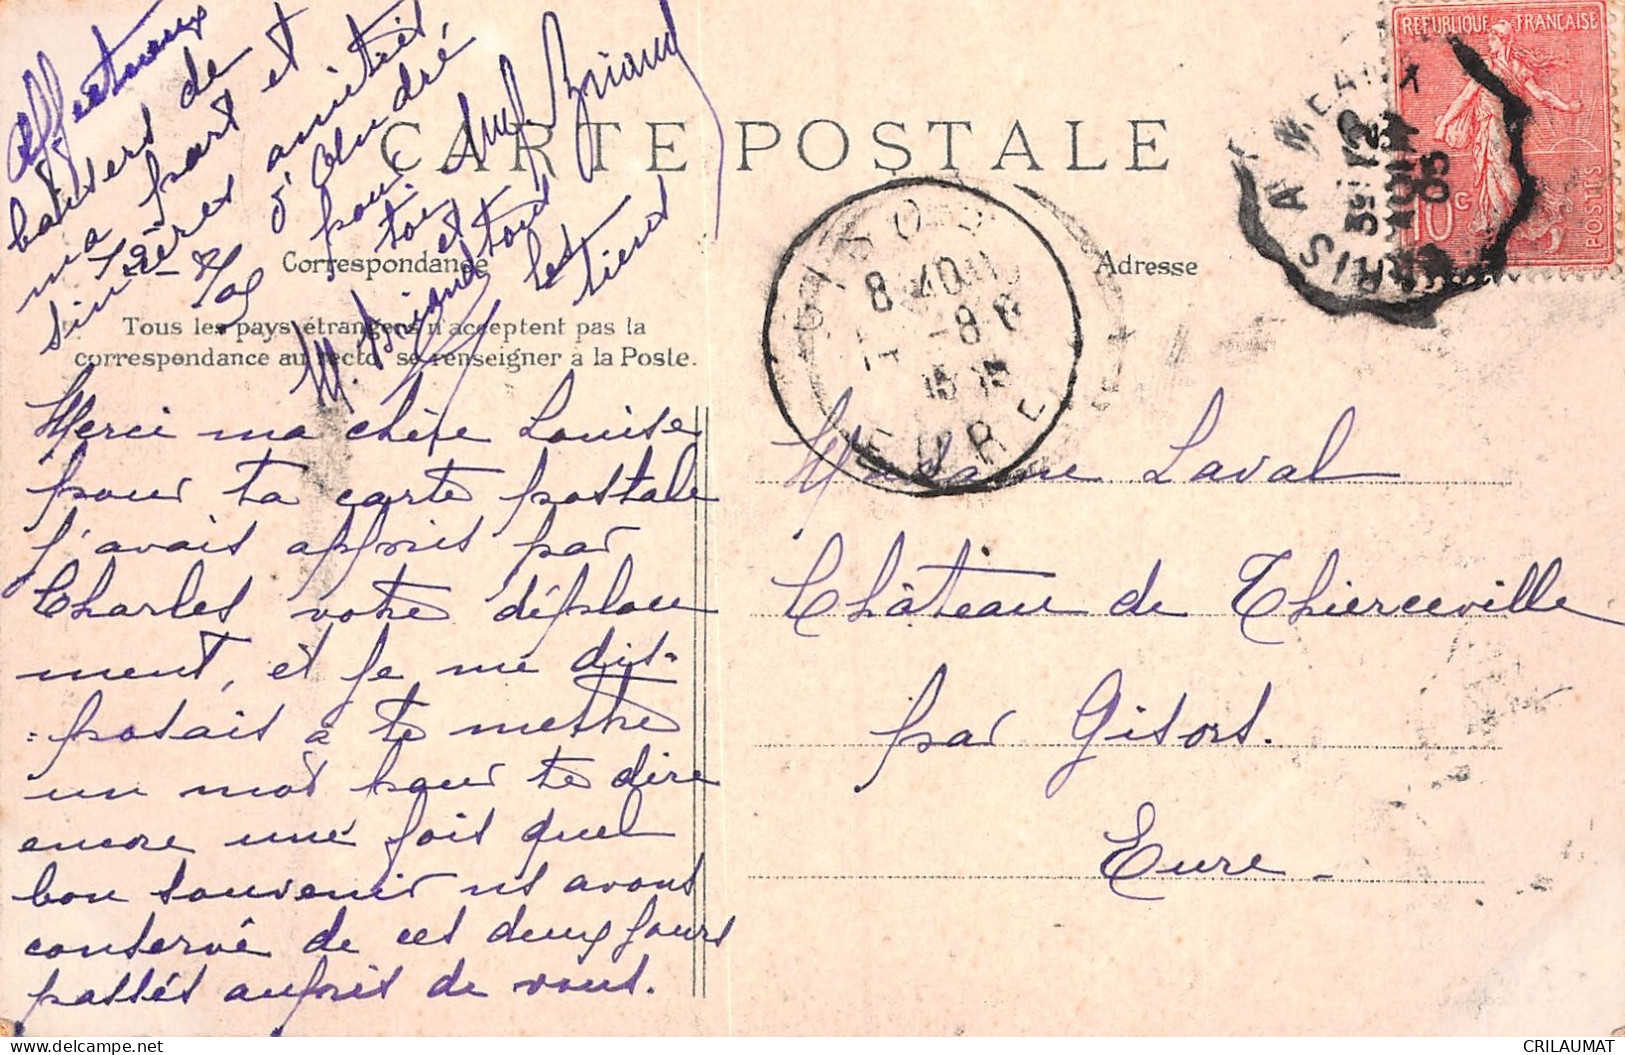 CARTE POSTALE
Correspondance
Adresse
Tous les pays étrangers n'acceptent pas la
correspondance au recto, se renseigner à la Poste.
REPUBLIQUE FRANÇAISE
10c
POSTES
PARIS A MEAUX
3E 12
AOUT
05
GISORS
8 40
8-8
05
EURE
Merci ma chère Louise
pour ta carte postale
j'avais appris par
Charles votre déplace
ment, et je me dis-
=posais à te mettre
un mot pour te dire
encore une fois quel
bon souvenir ns avons
conservé de ces deux jours
passés auprès de vous.
Affectueux
baisers de
ma part et
sincères amitiés
d'André
pour
toi et tous
les tiens
M. Briand
Briand
Madame Laval
Château de Thierceville
par Gisors.
Eure -
CRILAUMAT